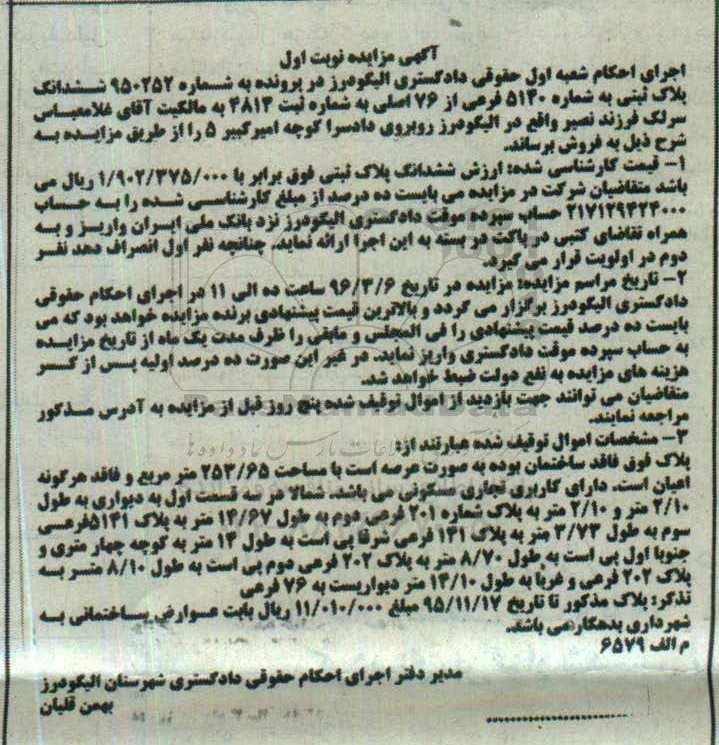 آگهی مزایده نوبت اول
اجرای احکام شعبه اول حقوقی دادگستری الیگودرز در پرونده به شماره ۹۵۰۲۵۲ ششدانگ
پلاک ثبتی به شماره ۵۱۴۰ فرعی از ۷۶ اصلی به شماره ثبت ۴۸۱۴ به مالکیت آقای غلامعباس
سرلک فرزند نصیر واقع در الیگودرز روبروی دادسرا کوچه امیرکبیر ۵ را از طریق مزایده به
شرح ذیل به فروش برساند.
۱- قیمت کارشناسی شده: ارزش ششدانگ پلاک ثبتی فوق برابر با ۱/۹۰۲/۳۷۵/۰۰۰ ریال می
باشد متقاضیان شرکت در مزایده می بایست ده درصد از مبلغ کارشناسی شده را به حساب
۲۱۷۱۲۹۴۲۴۰۰۰ حساب سپرده موقت دادگستری الیگودرز نزد بانک ملی ایران واریز و به
همراه تقاضای کتبی در پاکت در بسته به این اجرا ارائه نماید. چنانچه نفر اول انصراف دهد نفر
دوم در اولویت قرار می گیرد.
۲- تاریخ مراسم مزایده: مزایده در تاریخ ۹۶/۳/۶ ساعت ده الی ۱۱ در اجرای احکام حقوقی
دادگستری الیگودرز برگزار می گردد و بالاترین قیمت پیشنهادی برنده مزایده خواهد بود که می
بایست ده درصد قیمت پیشنهادی را فی المجلس و مابقی را ظرف مدت یک ماه از تاریخ مزایده
به حساب سپرده موقت دادگستری واریز نماید. در غیر این صورت ده درصد اولیه پس از کسر
هزینه های مزایده به نفع دولت ضبط خواهد شد.
متقاضیان می توانند جهت بازدید از اموال توقیف شده پنج روز قبل از مزایده به آدرس مذکور
مراجعه نمایند.
۳- مشخصات اموال توقیف شده عبارتند از:
پلاک فوق فاقد ساختمان بوده به صورت عرصه است با مساحت ۲۵۳/۶۵ متر مربع و فاقد هرگونه
اعیان است. دارای کاربری تجاری مسکونی می باشد. شمالا در سه قسمت اول به دیواری به طول
۲/۱۰ متر و ۲/۱۰ متر به پلاک شماره ۲۰۱ فرعی دوم به طول ۱۴/۶۷ متر به پلاک ۵۱۴۱فرعی
سوم به طول ۳/۷۳ متر به پلاک ۱۴۱ فرعی شرقا پی است به طول ۱۴ متر به کوچه چهار متری و
جنوبا اول پی است به طول ۸/۷۰ متر به پلاک ۲۰۲ فرعی دوم پی است به طول ۸/۱۰ متر به
پلاک ۲۰۲ فرعی و غرباً به طول ۱۴/۱۰ متر دیواریست به ۷۶ فرعی
تذکر: پلاک مذکور تا تاریخ ۹۵/۱۱/۱۷ مبلغ ۱۱/۰۱۰/۰۰۰ ریال بابت عوارض ساختمانی به
شهرداری بدهکار می باشد.
م الف ۶۵۷۹
مدیر دفتر اجرای احکام حقوقی دادگستری شهرستان الیگودرز
بهمن قلیان